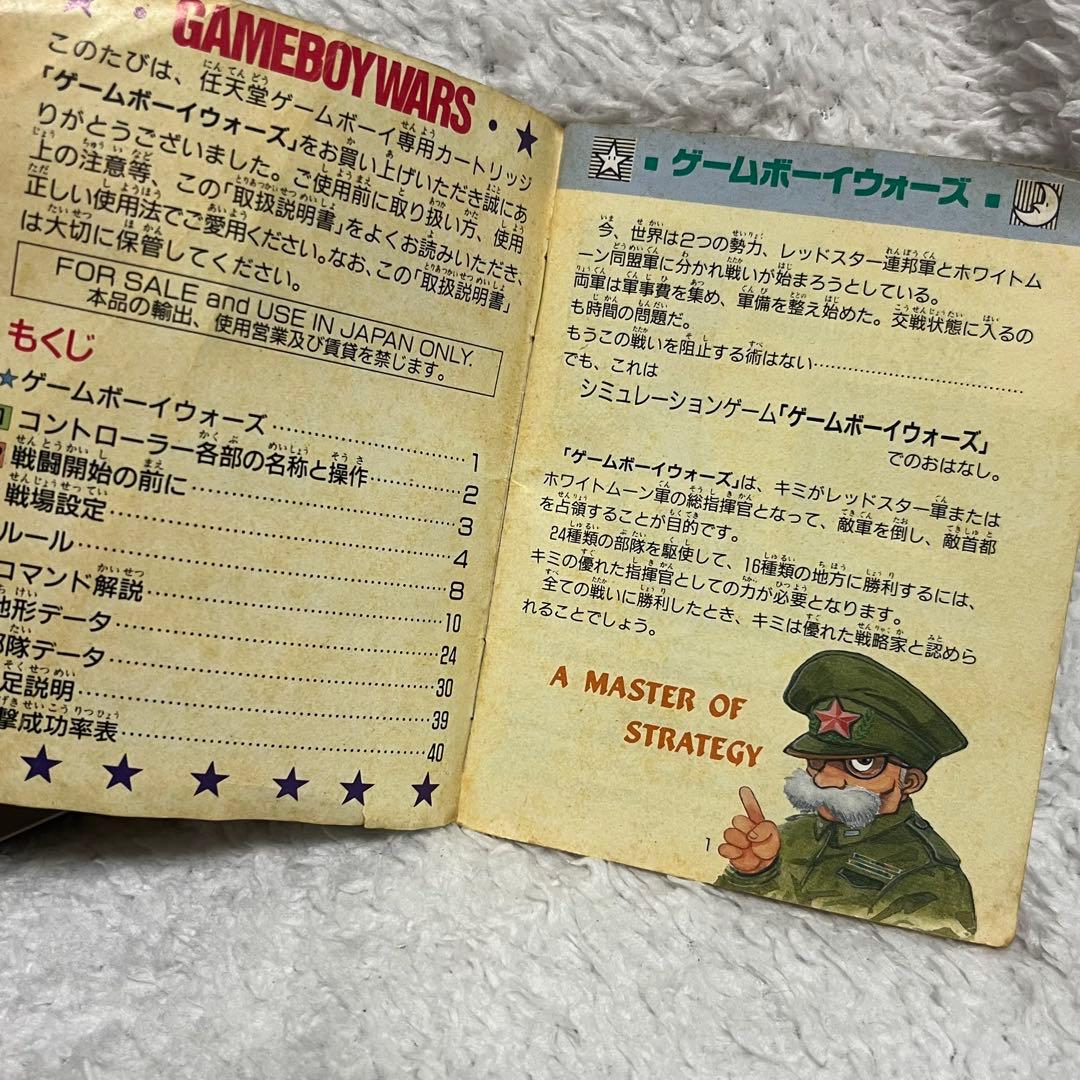 GAMEBOYWARS
このたびは、任天堂ゲームボーイ専用カートリッジ
「ゲームボーイウォーズ」をお買い上げいただき誠にあ
りがとうございました。ご使用前に取り扱い方、使用
上の注意等、この「取扱説明書」をよくお読みいただき、
正しい使用法でご愛用ください。なお、この「取扱説明書」
は大切に保管してください。
FOR SALE and USE IN JAPAN ONLY.
本品の輸出、使用営業及び賃貸を禁じます。
もくじ
★ゲームボーイウォーズ……………1
コントローラー各部の名称と操作……2
戦闘開始の前に……………3
戦場設定……………4
ルール……………8
コマンド解説……………10
地形データ……………24
部隊データ……………30
足説明……………39
撃成功率表……………40
ゲームボーイウォーズ
今、世界は2つの勢力、レッドスター連邦軍とホワイトム
ーン同盟軍に分かれ戦いが始まろうとしている。
両軍は軍事費を集め、軍備を整え始めた。交戦状態に入るの
も時間の問題だ。
もうこの戦いを阻止する術はない……………
でも、これは
シミュレーションゲーム「ゲームボーイウォーズ」
でのおはなし。
「ゲームボーイウォーズ」は、キミがレッドスター軍または
ホワイトムーン軍の総指揮官となって、敵軍を倒し、敵首都
を占領することが目的です。
24種類の部隊を駆使して、16種類の地方に勝利するには、
キミの優れた指揮官としての力が必要となります。
全ての戦いに勝利したとき、キミは優れた戦略家と認めら
れることでしょう。
A MASTER OF
STRATEGY
1